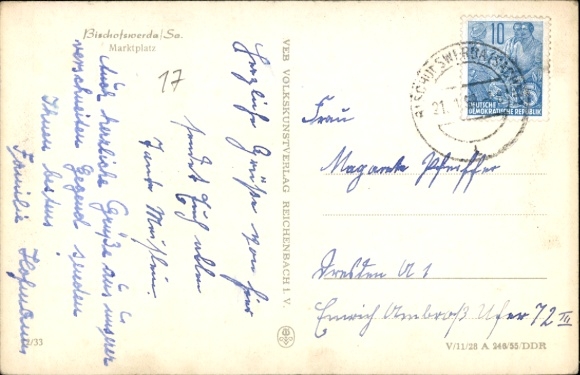 Bischofswerda/Sa.
Marktplatz
17
Herzliche Grüße von hier
sendet Euch allen
Tante
Auch herzliche Grüße aus unserer
verschneiten Gegend senden
Ihnen bestens
Familie
VEB VOLKSKUNSTVERLAG REICHENBACH i. V.
10
DEUTSCHE
DEMOKRATISCHE REPUBLIK
BISCHOFSWERDA
Frau
Magarete Pfeiffer
Dresden A 1
Emrich Ambroß Ufer 72 III
/33
V/11/28 A 246/55/DDR